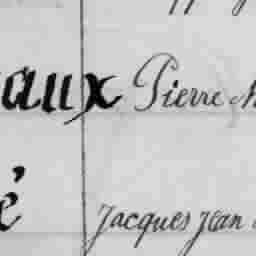 aux Pierre
é Jacques Jean